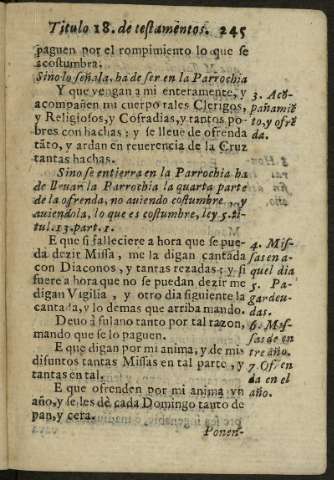 Titulo 18. de testamẽtos. 245
paguen por el rompimiento lo que se
acostumbra;
Sino lo señala, ha de ser en la Parrochia
Y que vengan a mi enteramente, y
acompañen mi cuerpo tales Clerigos,
y Religiosos, y Cofradias, y tantos po-
bres con hachas; y se lleue de ofrenda
tãto, y ardan en reuerencia de la Cruz
tantas hachas.
3. Acõ-
pañamiẽ
to, y ofrẽ
da.
Sino se entierra en la Parrochia ha
de lleuar la Parrochia la quarta parte
de la ofrenda, no auiendo costumbre, y
auiendola, lo que es costumbre, ley 5. ti-
tul. 13. part. 1.
E que si falleciere a hora que se pue-
da dezir Missa, me la digan cantada
con Diaconos, y tantas rezadas; y si
fuere a hora que no se puedan dezir me
digan Vigilia, y otro dia siguiente la
cantada, y lo demas que arriba mando.
4. Mis-
sas en a-
quel dia
5. Pa-
gar deu-
das.
Deuo à fulano tanto por tal razon,
mando que se lo paguen.
E que digan por mi anima, y de mis
difuntos tantas Missas en tal parte, y
tantas en tal.
6. Mis-
sas de en
tre año.
E que ofrenden por mi anima vn
año, y se les dè cada Domingo tanto de
pan, y cera.
7. Ofrẽ
da en el
año.
Ponen-